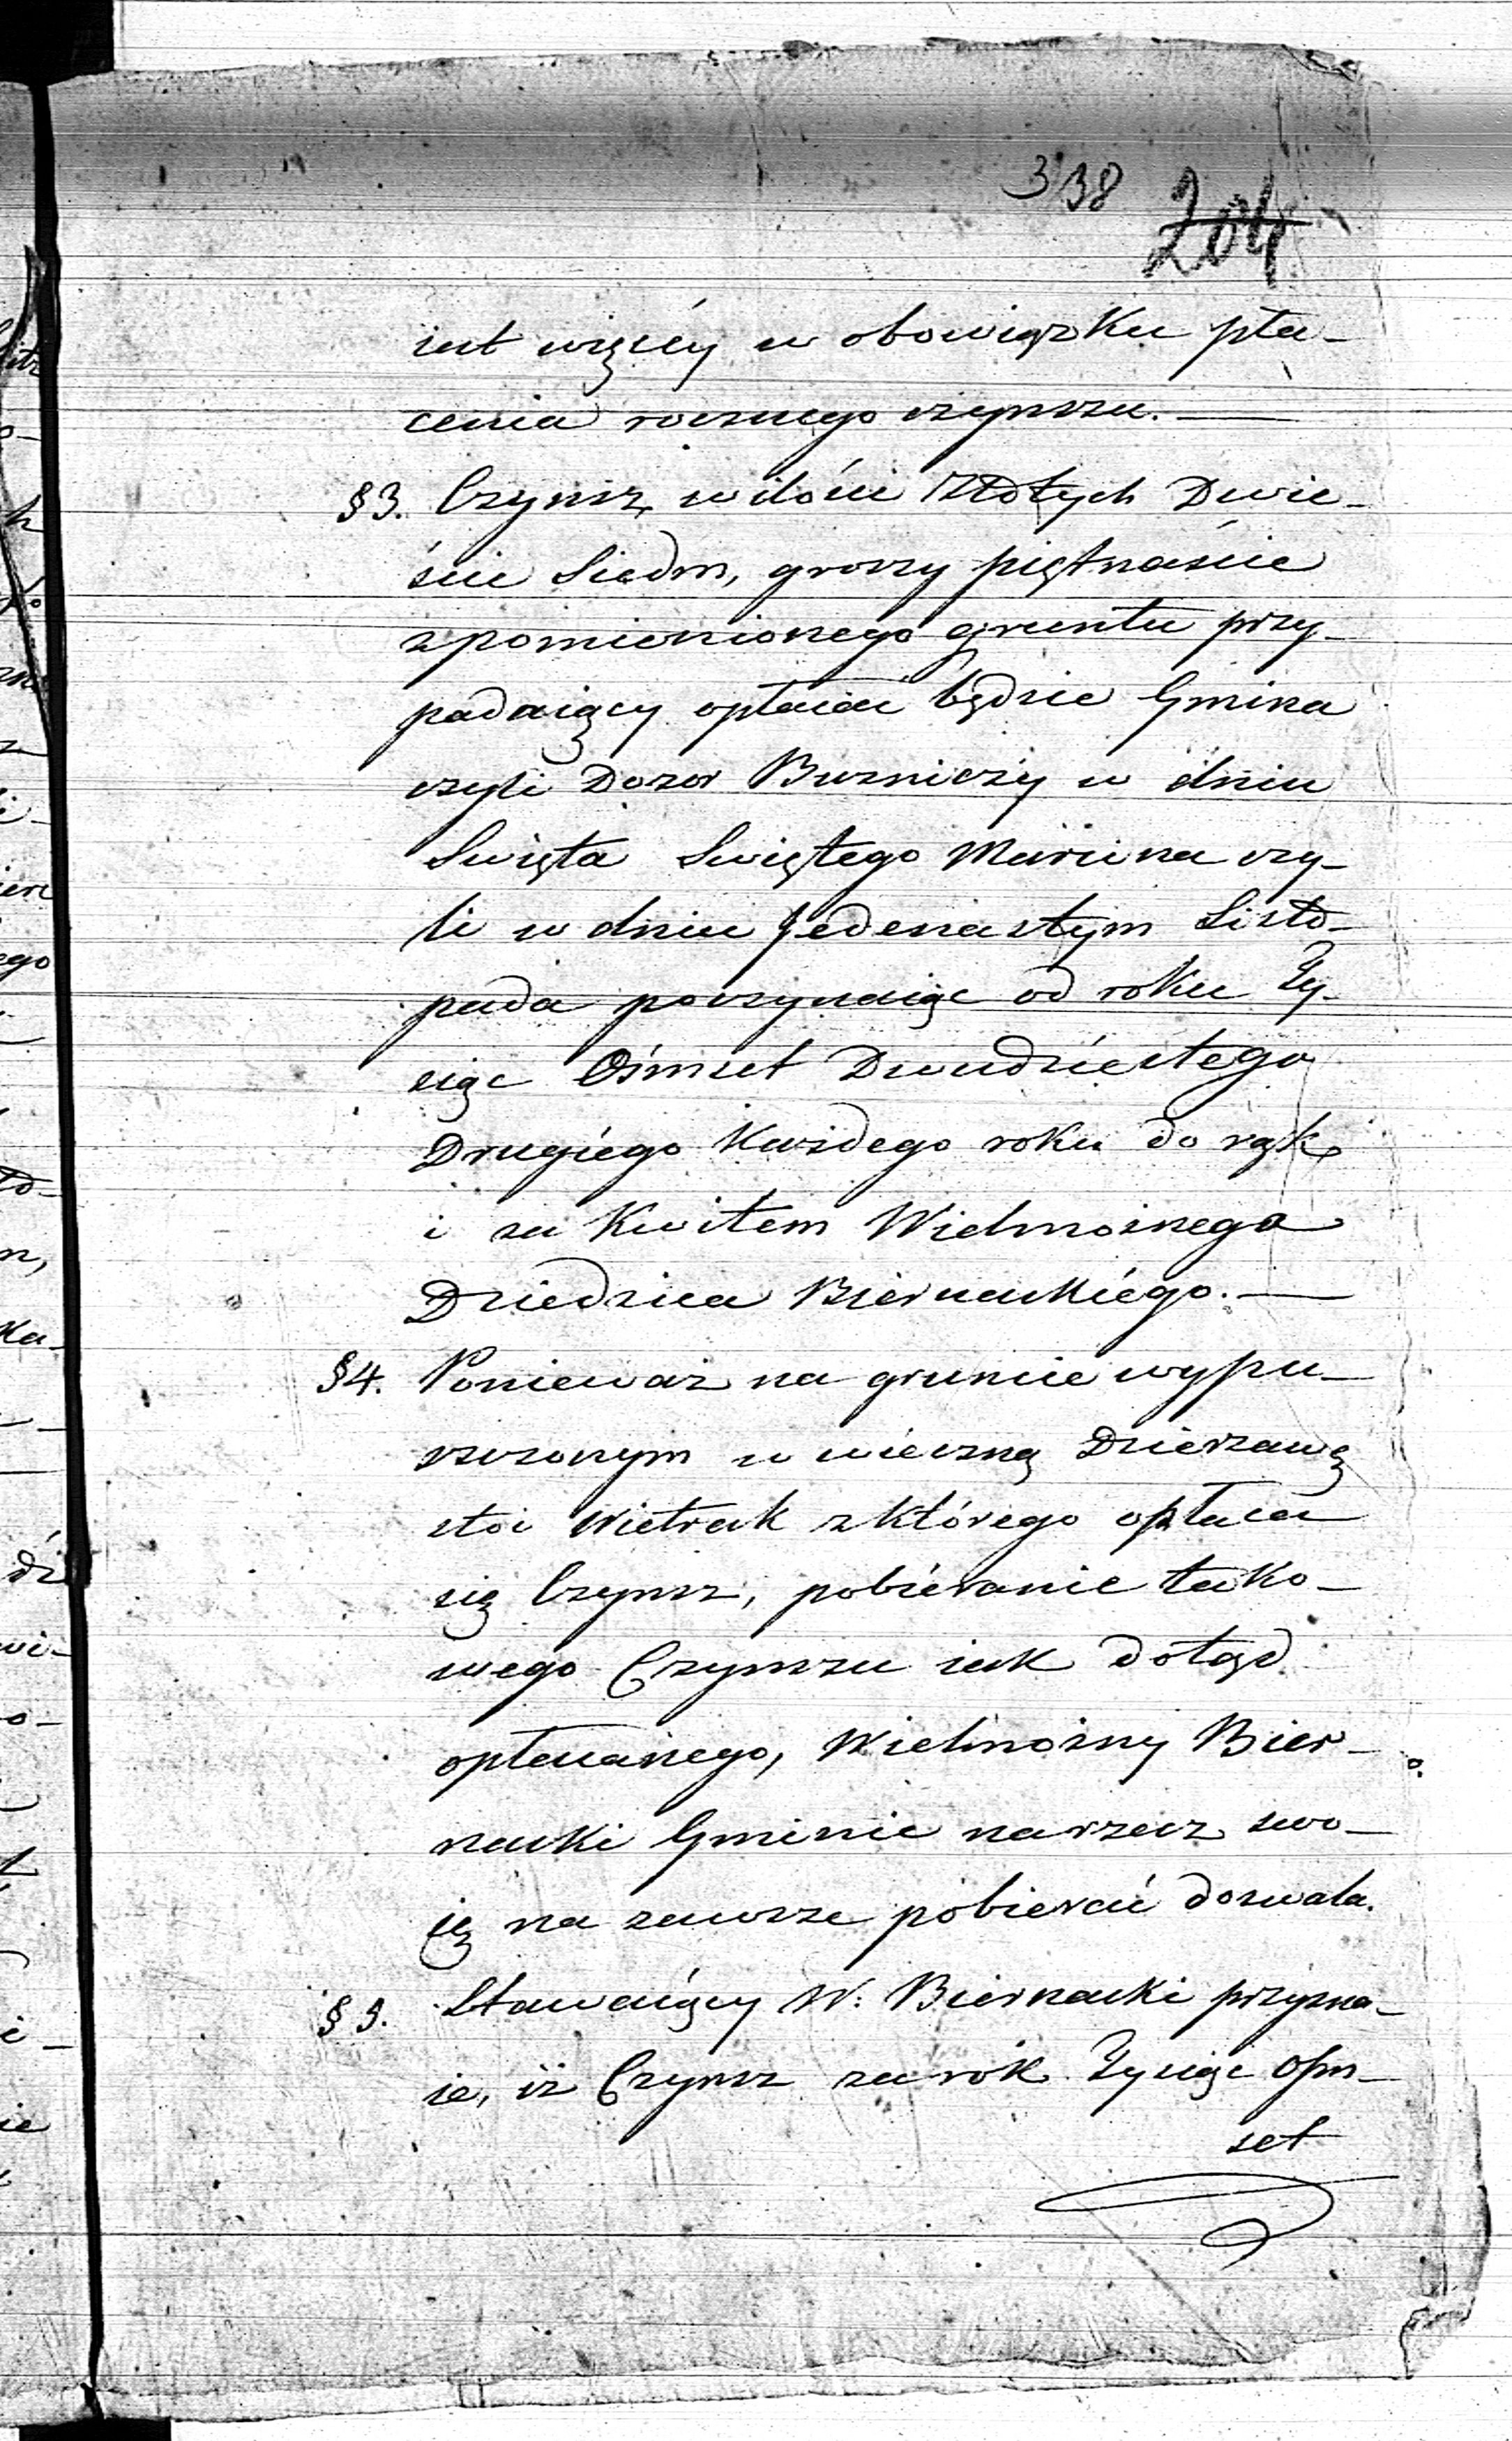 338
204
iest więcéy w obowiązku pła-
cenia rocznego czynszu.—
§3. Czynsz w ilości Złotych Dwie-
ście Siedm, groszy piętnaście
z pomienionego gruntu przy-
padaiący opłacać będzie Gmina
czyli Dozor Bużniczy w dniu
Swięta Swiętego Marcina czy-
li w dniu Jedenastym Listo-
pada poczynaiąc od roku Ty-
siąc Ośmset Dwudziestego
Drugiégo Każdego roku do rąk
i za Kwitem Wielmożnego
Dziedzica Biernackiégo.—
§4. Ponieważ na gruncie wypu-
szczonym w wieczną Dzierzawę
stoi Wietrak z którego opłaca
się Czynsz, pobiéranie tako-
wego Czynszu iak dotąd
opłacanego, Wielmożny Bier-
nacki Gminie na rzecz swo-
ię na zawsze pobierać dozwala.
§5. Stawaiący W: Biernacki przyzna-
ie, iż Czynsz za rok Tysiąc Ośm-
set